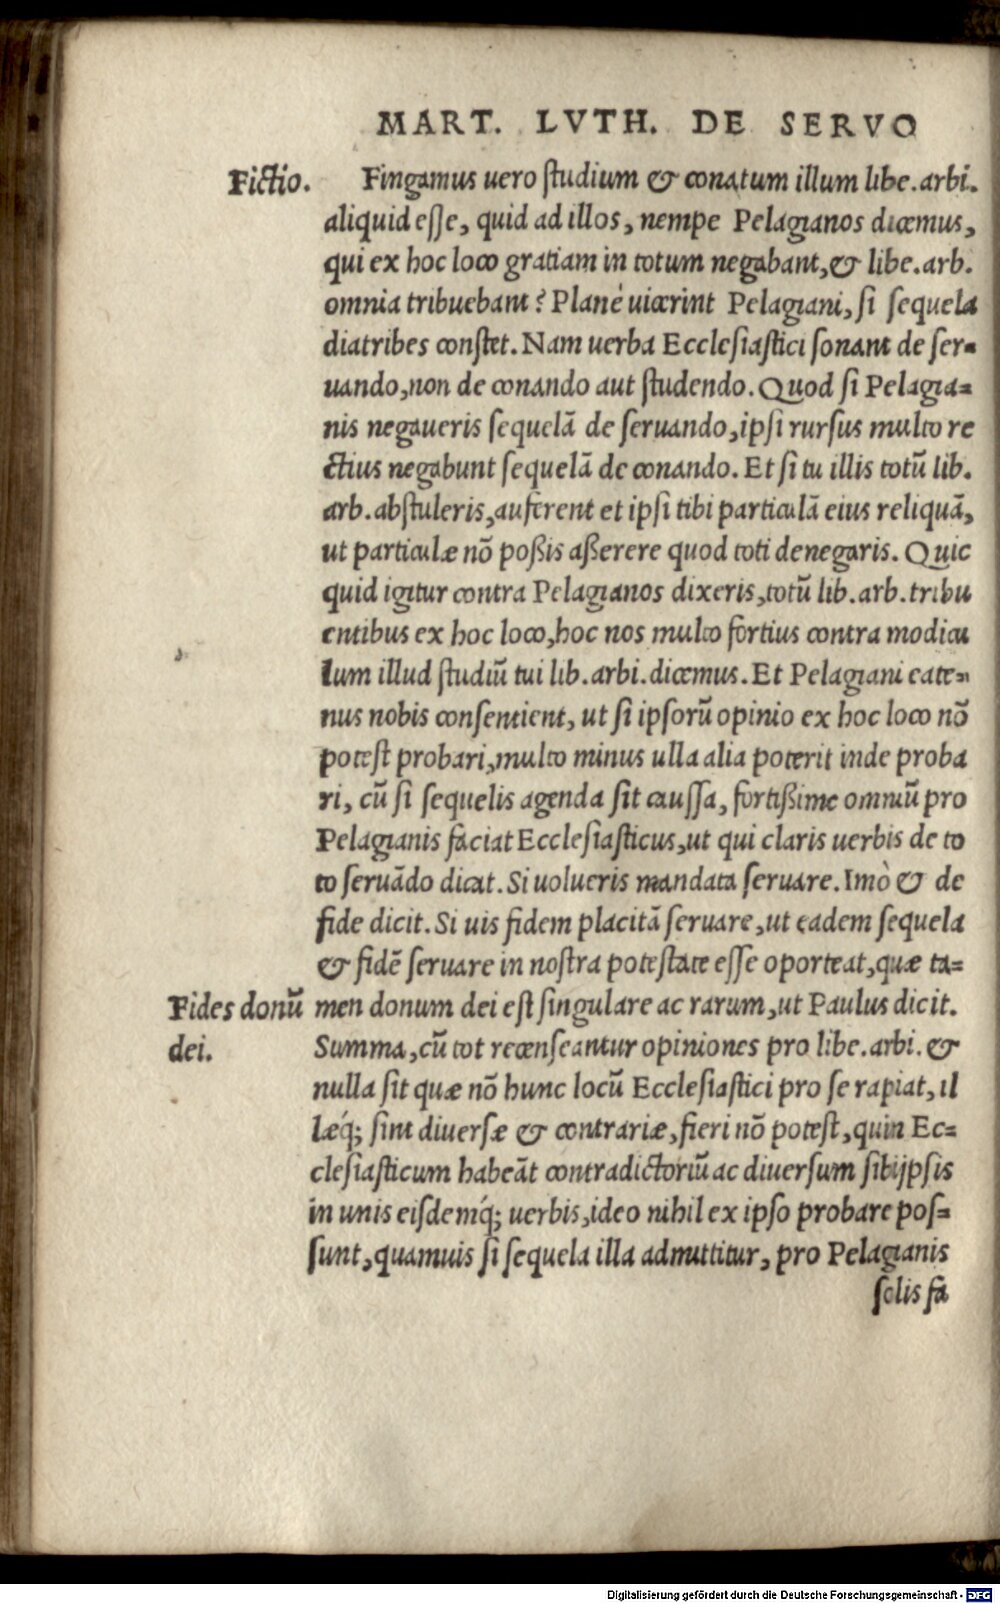 MART. LVTH. DE SERVO
Fictio.
Fingamus uero ſtudium & conatum illum libe.arbi.
aliquid eſſe, quid ad illos, nempe Pelagianos dicemus,
qui ex hoc loco gratiam in totum negabant,& libe.arb.
omnia tribuebant? Planè uicerint Pelagiani, ſi ſequela
diatribes conſtet. Nam uerba Eccleſiaſtici ſonant de ſer=
uando,non de conando aut ſtudendo. Quod ſi Pelagia=
nis negaueris ſequelā de ſeruando,ipſi rurſus multo re
ctius negabunt ſequelā de conando. Et ſi tu illis totū lib.
arb.abſtuleris,auferent et ipſi tibi particulā eius reliquā,
ut particulæ nō poßis aßerere quod toti denegaris. Quic
quid igitur contra Pelagianos dixeris,totū lib.arb.tribu
entibus ex hoc loco,hoc nos multo fortius contra modicu
lum illud ſtudiū tui lib.arbi.dicemus. Et Pelagiani eate=
nus nobis conſentient, ut ſi ipſorū opinio ex hoc loco nō
poteſt probari,multo minus ulla alia poterit inde proba
ri, cū ſi ſequelis agenda ſit cauſſa, fortißime omniū pro
Pelagianis faciat Eccleſiaſticus,ut qui claris uerbis de to
to ſeruādo dicat. Si uolueris mandata ſeruare. Imò & de
fide dicit. Si uis fidem placitā ſeruare,ut eadem ſequela
& fidē ſeruare in noſtra poteſtate eſſe oporteat,quæ ta=
Fides donū
dei.
men donum dei eſt ſingulare ac rarum,ut Paulus dicit.
Summa,cū tot recenſeantur opiniones pro libe.arbi. &
nulla ſit quæ nō hunc locū Eccleſiaſtici pro ſe rapiat, il
læq́; ſint diuerſæ & contrariæ,fieri nō poteſt,quin Ec=
cleſiaſticum habeāt contradictoriū ac diuerſum ſibijpſis
in unis eiſdemq́; uerbis,ideo nihil ex ipſo probare poſ=
ſunt,quamuis ſi ſequela illa admittitur, pro Pelagianis
ſolis fa
Digitalisierung gefördert durch die Deutsche Forschungsgemeinschaft - DFG